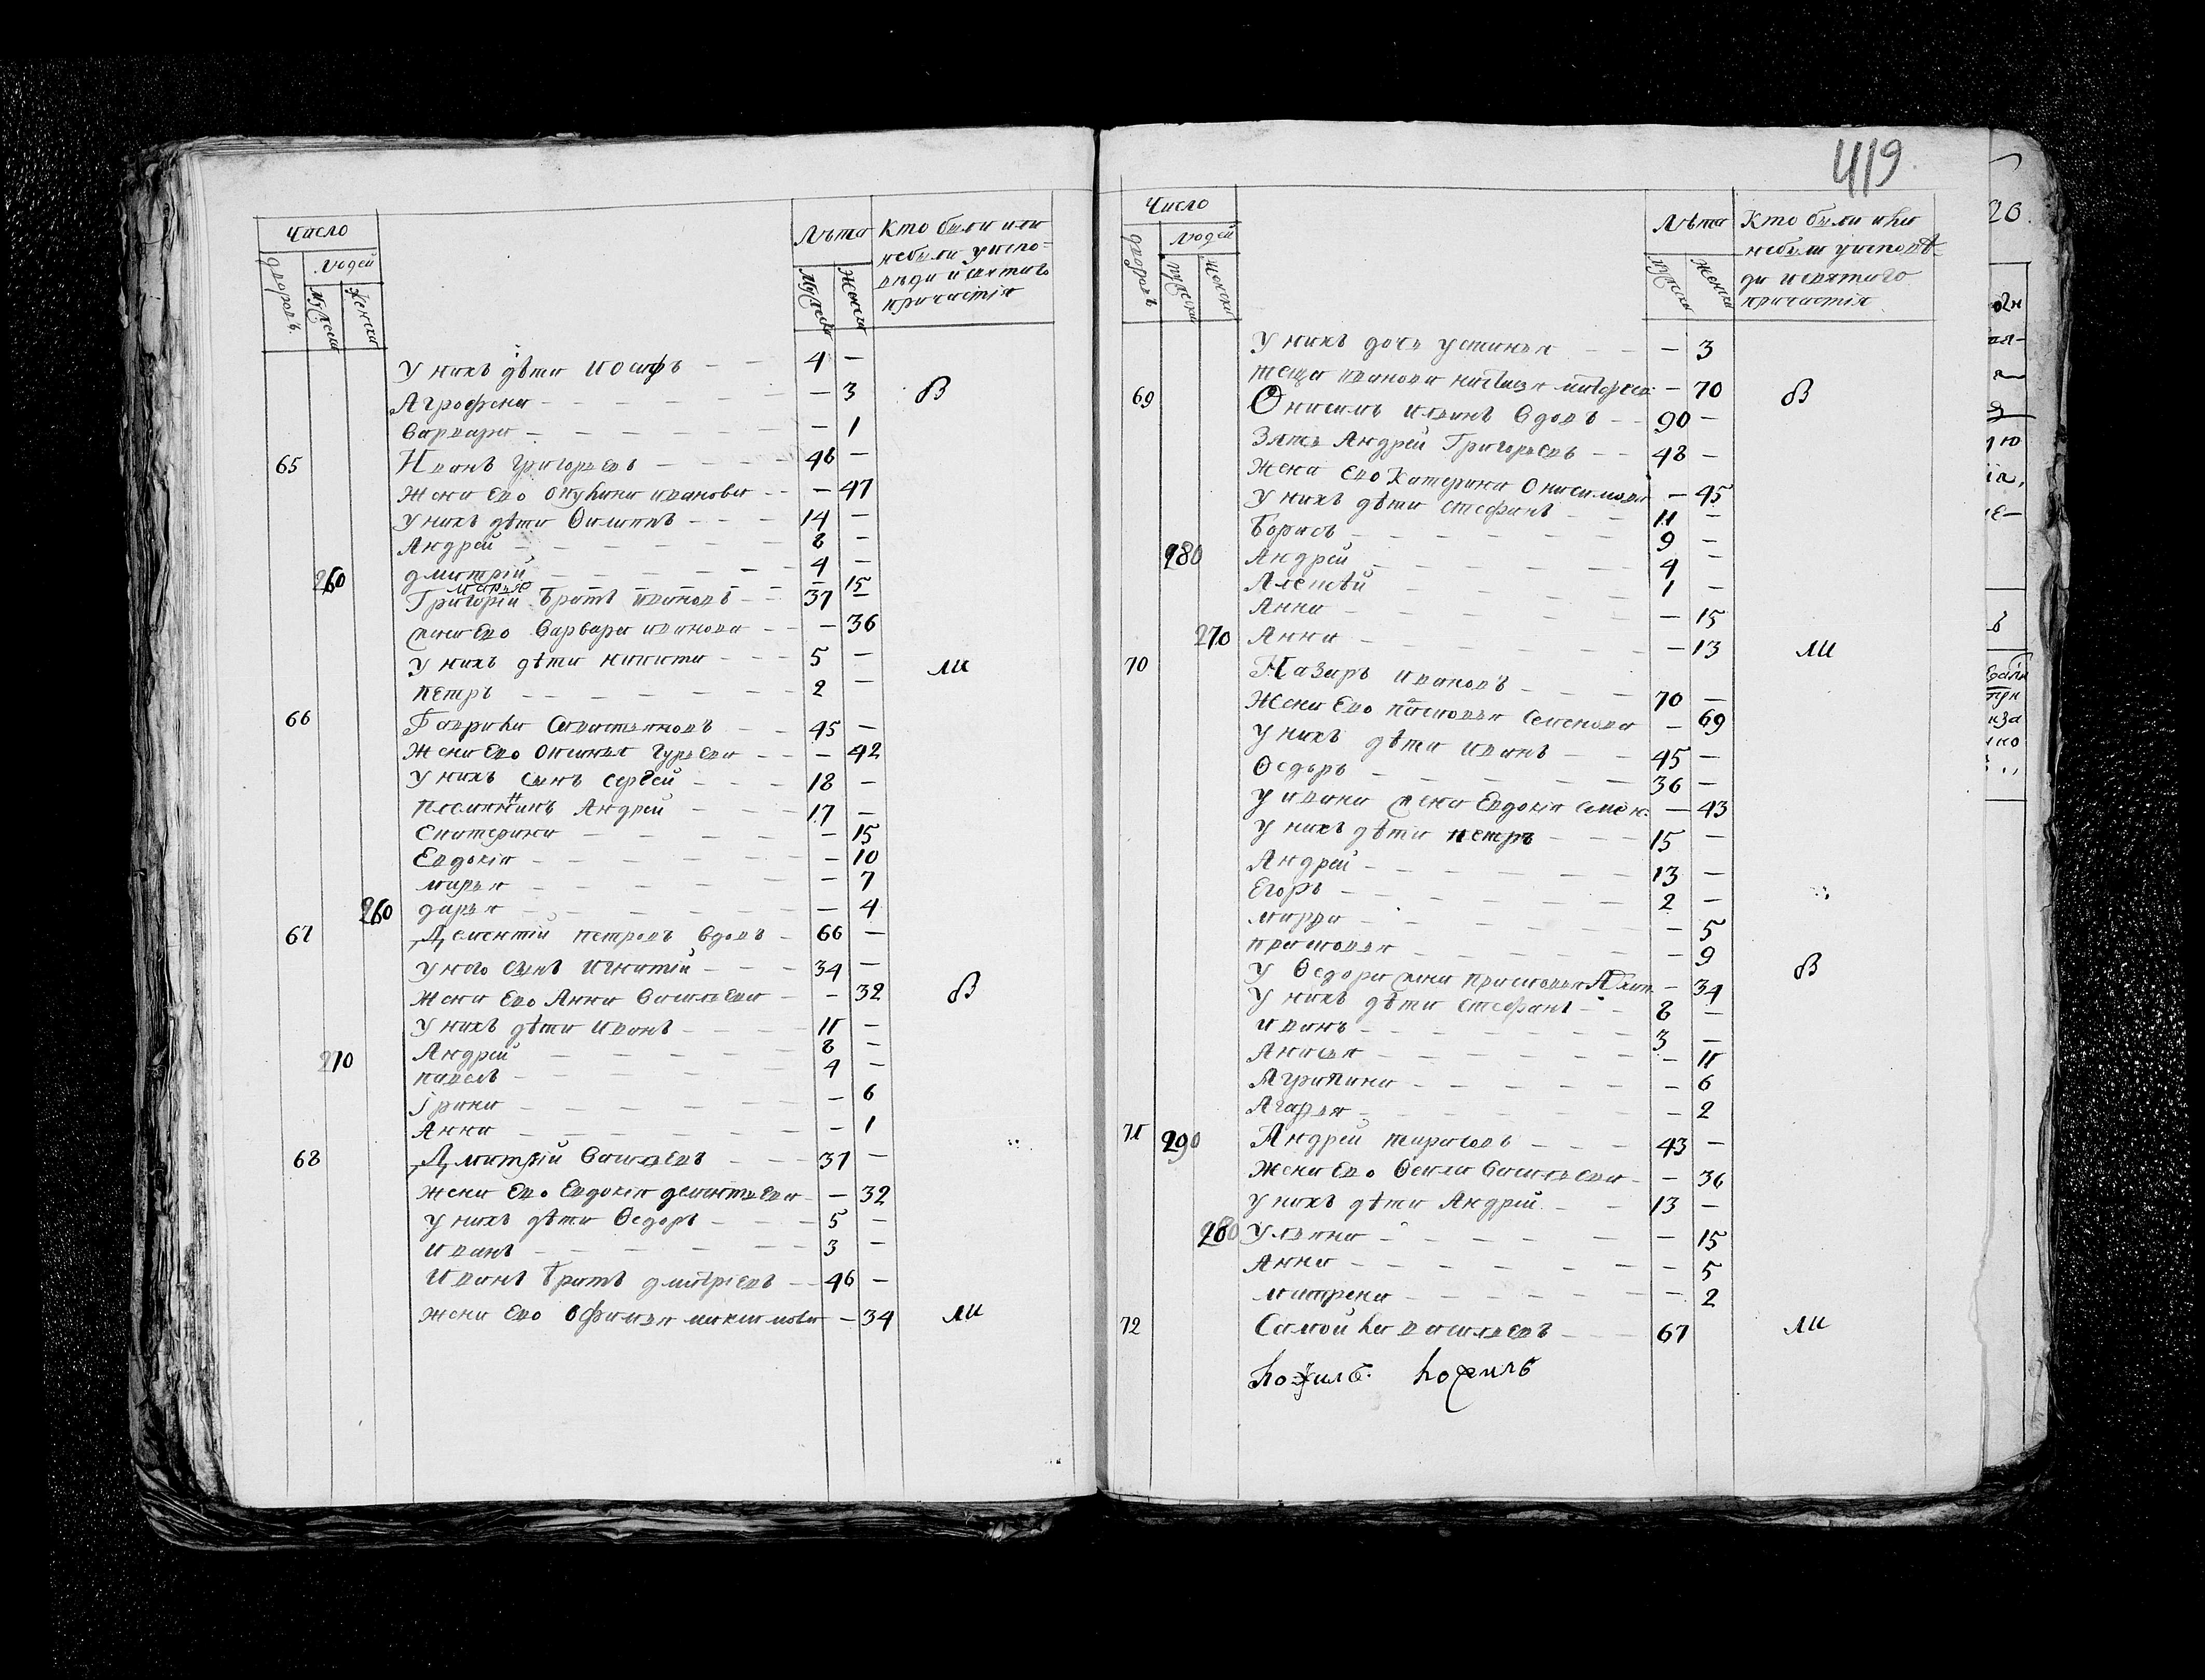 Число
дворовъ
Людей
Мужеска
Женска
Лѣта
Мужеска
Женска
Кто были или
небыли уиспо-
вѣди исвятаго
причастія
У нихъ дѣти Иосифъ — — 4 —
Агрофена — — — — — — 3 В
Варвара — — — — — — 1
65 Иванъ Григорьевъ — — — — 46 —
Жена Ево Окулина иванова — — — 47
У нихъ дѣти Филипъ — — — 14 —
Андрей — — — — — — 8 —
260 дмитрій — — — — — — 4 —
марья — 15
Григорій братъ ивановъ — — 37 —
жена Ево Варвара иванова — — — 36
У нихъ дѣти никита — — — 5 — ли
петръ — — — — — — 2 —
66 Гаврила Савостьяновъ — — 45 —
Жена Ево Аксинья Гурьева — — — 42
У нихъ сынъ Сергей — — — 18 —
племянникъ Андрей — — — 17 —
Екатерина — — — — — 15
Евдокія — — — — — — 10
марья — — — — — — 7
260 дарья — — — — — — 4
67 Дементій петровъ вдовъ — 66 —
Унего сынъ Игнатій — — — 34 —
Жена Ево Анна Васильева — — 32 В
У нихъ дѣти Иванъ — — — 11 —
Андрей — — — — — 8 —
270 павелъ — — — — — 4 —
Ірина — — — — — — 6
Анна — — — — — — 1
68 Дмитрій Васильевъ — — — 37 —
Жена Ево Евдокія дементьева — — 32
У нихъ дѣти Ѳедоръ — — — 5 —
Иванъ — — — — — — 3 —
Иванъ братъ дмитріевъ — — 46 —
жена Ево Офимья максимова — 34 ли
419
Число
дворовъ
Людей
Мужеска
Женска
Лѣта
Мужеска
Женска
Кто были или
небыли уисповѣ-
ди исвятаго
причастія
У нихъ дочь устинья — — — 3
теща иванова — 70 В
69 Онисимъ ивановъ вдовъ — — 90 —
Зять Андрей Григорьевъ — — 48 —
Жена Ево Катерина Онисимова — 45
У нихъ дѣти стефанъ — — 11 —
Борисъ — — — — — — 9 —
280 Андрей — — — — — — 4 —
Алексѣй — — — — 1 —
Анна — — — — — — 15
270 Анна — — — — 13 ли
70 Назаръ ивановъ — — — 70 —
Жена Ево Прасковья Семенова — 69
У нихъ дѣти иванъ — — 45 —
Ѳедоръ — — — — — — 36 —
У ивана жена Евдокія семен. — 43
У нихъ дѣти петръ — — — 15 —
Андрей — — — — — — 13 —
Егоръ — — — — — — 2 —
марфа — — — — — — 5
прасковья — — — — — 9
У Ѳедора жена прасковья — 34 В
У нихъ дѣти стефанъ — — 8 —
иванъ — — — — — — 3 —
Анисья — — — — — — 11
Агрипина — — — — — — 6
Агафья — — — — — — 2
71 290 Андрей тарасовъ — — — 43 —
Жена Ево Ѳекла Васильева — — 36
У нихъ дѣти Андрей — — 13 —
280 Ульяна — — — — — 15
Анна — — — — — — — 5
матрена — — — — — — 2
72 Самойла васильевъ — — 67 ли